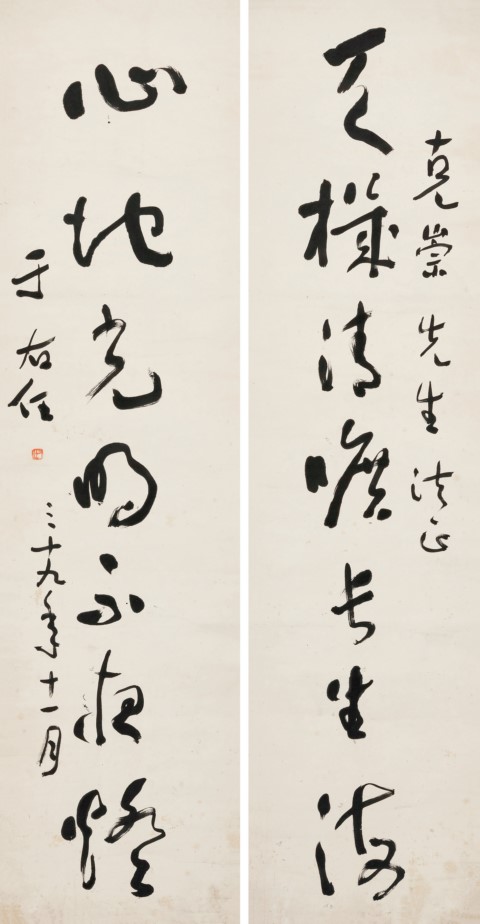 克崇先生法正
天機清曠長生海
心地光明不夜燈
于右任
三十九年十一月